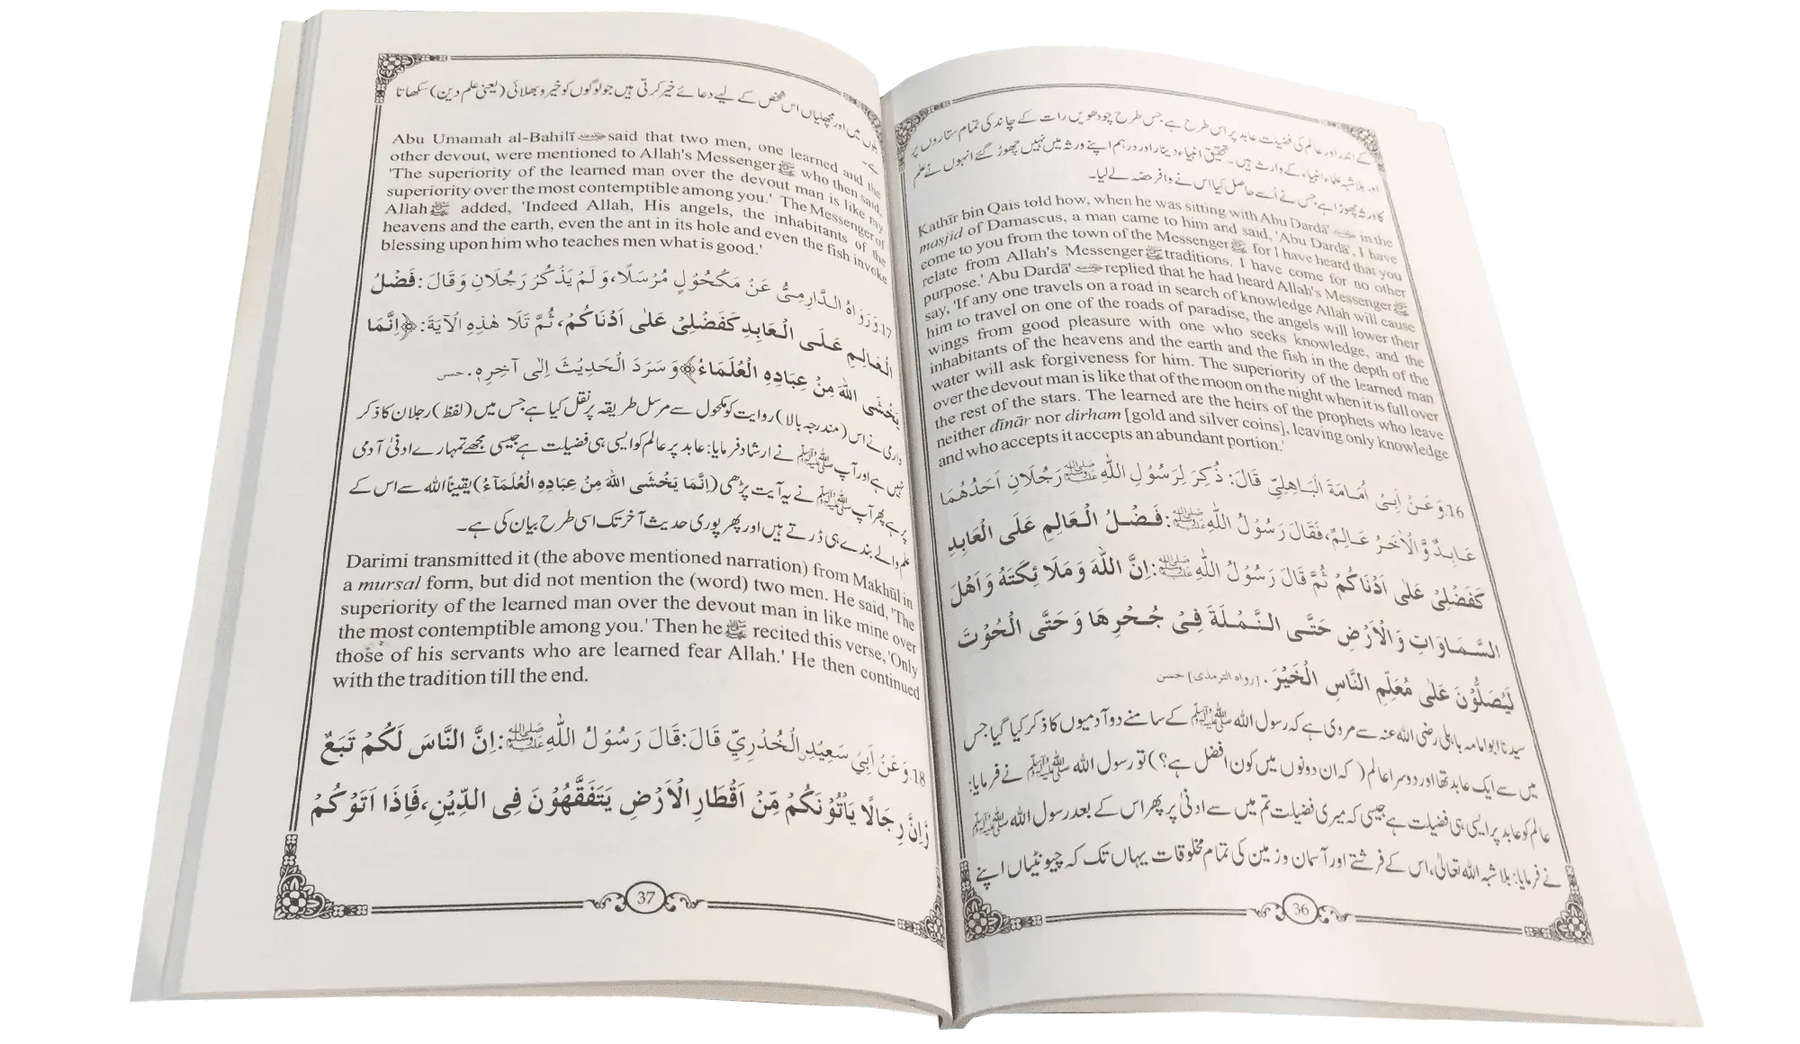 کے اندر اور عالم کی فضیلت عابد پر اس طرح ہے جس طرح چودھویں رات کے چاند کی تمام ستاروں پر
اور بلاشبہ علماء انبیاء کے وارث ہیں۔ تحقیق انبیاء دینار اور درہم اپنے ورثہ میں نہیں چھوڑ گئے انہوں نے علم
کا ورثہ چھوڑا ہے جس نے اُسے حاصل کیا اس نے وافر حصّہ لے لیا۔
Kathīr bin Qais told how, when he was sitting with Abu Dardā' in the
masjid of Damascus, a man came to him and said, 'Abu Dardā', I have
come to you from the town of the Messenger ﷺ for I have heard that you
relate from Allah's Messenger ﷺ traditions. I have come for no other
purpose.' Abu Dardā' replied that he had heard Allah's Messenger ﷺ
say, 'If any one travels on a road in search of knowledge Allah will cause
him to travel on one of the roads of paradise, the angels will lower their
wings from good pleasure with one who seeks knowledge, and the
inhabitants of the heavens and the earth and the fish in the depth of the
water will ask forgiveness for him. The superiority of the learned man
over the devout man is like that of the moon on the night when it is full over
the rest of the stars. The learned are the heirs of the prophets who leave
neither dīnār nor dirham [gold and silver coins], leaving only knowledge
and who accepts it accepts an abundant portion.'
16. وَعَنْ اَبِیْ اُمَامَةَ الْبَاهِلِيِّ قَالَ: ذُكِرَ لِرَسُوْلِ اللّٰهِ ﷺ رَجُلَانِ اَحَدُهُمَا
عَابِدٌ وَّالْاٰخَرُ عَالِمٌ، فَقَالَ رَسُوْلُ اللّٰهِ ﷺ: فَضْلُ الْعَالِمِ عَلَى الْعَابِدِ
كَفَضْلِیْ عَلٰی اَدْنَاكُمْ ثُمَّ قَالَ رَسُوْلُ اللّٰهِ ﷺ: اِنَّ اللّٰهَ وَمَلَائِكَتَهُ وَاَهْلَ
السَّمَاوَاتِ وَالْاَرْضِ حَتَّى النَّمْلَةَ فِیْ جُحْرِهَا وَحَتَّى الْحُوْتَ
لَيُصَلُّوْنَ عَلٰی مُعَلِّمِ النَّاسِ الْخَيْرَ. [رواه الترمذی] حسن
سیدنا ابوامامہ باہلی رضی اللہ عنہ سے مروی ہے کہ رسول اللہ ﷺ کے سامنے دو آدمیوں کا ذکر کیا گیا جس
میں سے ایک عابد تھا اور دوسرا عالم (کہ ان دونوں میں کون افضل ہے؟) تو رسول اللہ ﷺ نے فرمایا:
عالم کو عابد پر ایسی ہی فضیلت ہے جیسی کہ میری فضیلت تم میں سے ادنیٰ پر پھر اس کے بعد رسول اللہ ﷺ
نے فرمایا: بلاشبہ اللہ تعالیٰ، اس کے فرشتے اور آسمان و زمین کی تمام مخلوقات یہاں تک کہ چیونٹیاں اپنے
36
بلوں میں اور مچھلیاں اس شخص کے لیے دعائے خیر کرتی ہیں جو لوگوں کو خیر و بھلائی (یعنی علم دین) سکھاتا
ہے۔
Abu Umamah al-Bahilī said that two men, one learned and the
other devout, were mentioned to Allah's Messenger ﷺ who then said,
'The superiority of the learned man over the devout man is like my
superiority over the most contemptible among you.' The Messenger of
Allah ﷺ added, 'Indeed Allah, His angels, the inhabitants of the
heavens and the earth, even the ant in its hole and even the fish invoke
blessing upon him who teaches men what is good.'
17. وَرَوَاهُ الدَّارِمِیُّ عَنْ مَكْحُوْلٍ مُرْسَلًا، وَلَمْ يَذْكُرْ رَجُلَانِ وَقَالَ: فَضْلُ
الْعَالِمِ عَلَى الْعَابِدِ كَفَضْلِیْ عَلٰی اَدْنَاكُمْ، ثُمَّ تَلَا هٰذِهِ الْاٰيَةَ: ﴿اِنَّمَا
يَخْشَى اللّٰهَ مِنْ عِبَادِهِ الْعُلَمَاءُ﴾ وَسَرَدَ الْحَدِيْثَ اِلٰی آخِرِهٖ. حسن
دارمی نے اس (مندرجہ بالا) روایت کو مکحول سے مرسل طریقہ پر نقل کیا ہے جس میں (لفظ) رجلان کا ذکر
نہیں ہے اور آپ ﷺ نے ارشاد فرمایا: عابد پر عالم کو ایسی ہی فضیلت ہے جیسی مجھے تمہارے ادنیٰ آدمی
پر ہے پھر آپ ﷺ نے یہ آیت پڑھی (اِنَّمَا يَخْشَى اللهَ مِنْ عِبَادِهِ الْعُلَمَآءُ) یقیناً اللہ سے اس کے
علم والے بندے ہی ڈرتے ہیں اور پھر پوری حدیث آخر تک اسی طرح بیان کی ہے۔
Darimi transmitted it (the above mentioned narration) from Makhūl in
a mursal form, but did not mention the (word) two men. He said, 'The
superiority of the learned man over the devout man in like mine over
the most contemptible among you.' Then he ﷺ recited this verse, 'Only
those of his servants who are learned fear Allah.' He then continued
with the tradition till the end.
18. وَعَنْ اَبِیْ سَعِيْدِ الْخُدْرِيِّ قَالَ: قَالَ رَسُوْلُ اللّٰهِ ﷺ: اِنَّ النَّاسَ لَكُمْ تَبَعٌ
وَّاِنَّ رِجَالًا يَاْتُوْنَكُمْ مِّنْ اَقْطَارِ الْاَرْضِ يَتَفَقَّهُوْنَ فِی الدِّيْنِ، فَاِذَا اَتَوْكُمْ
37